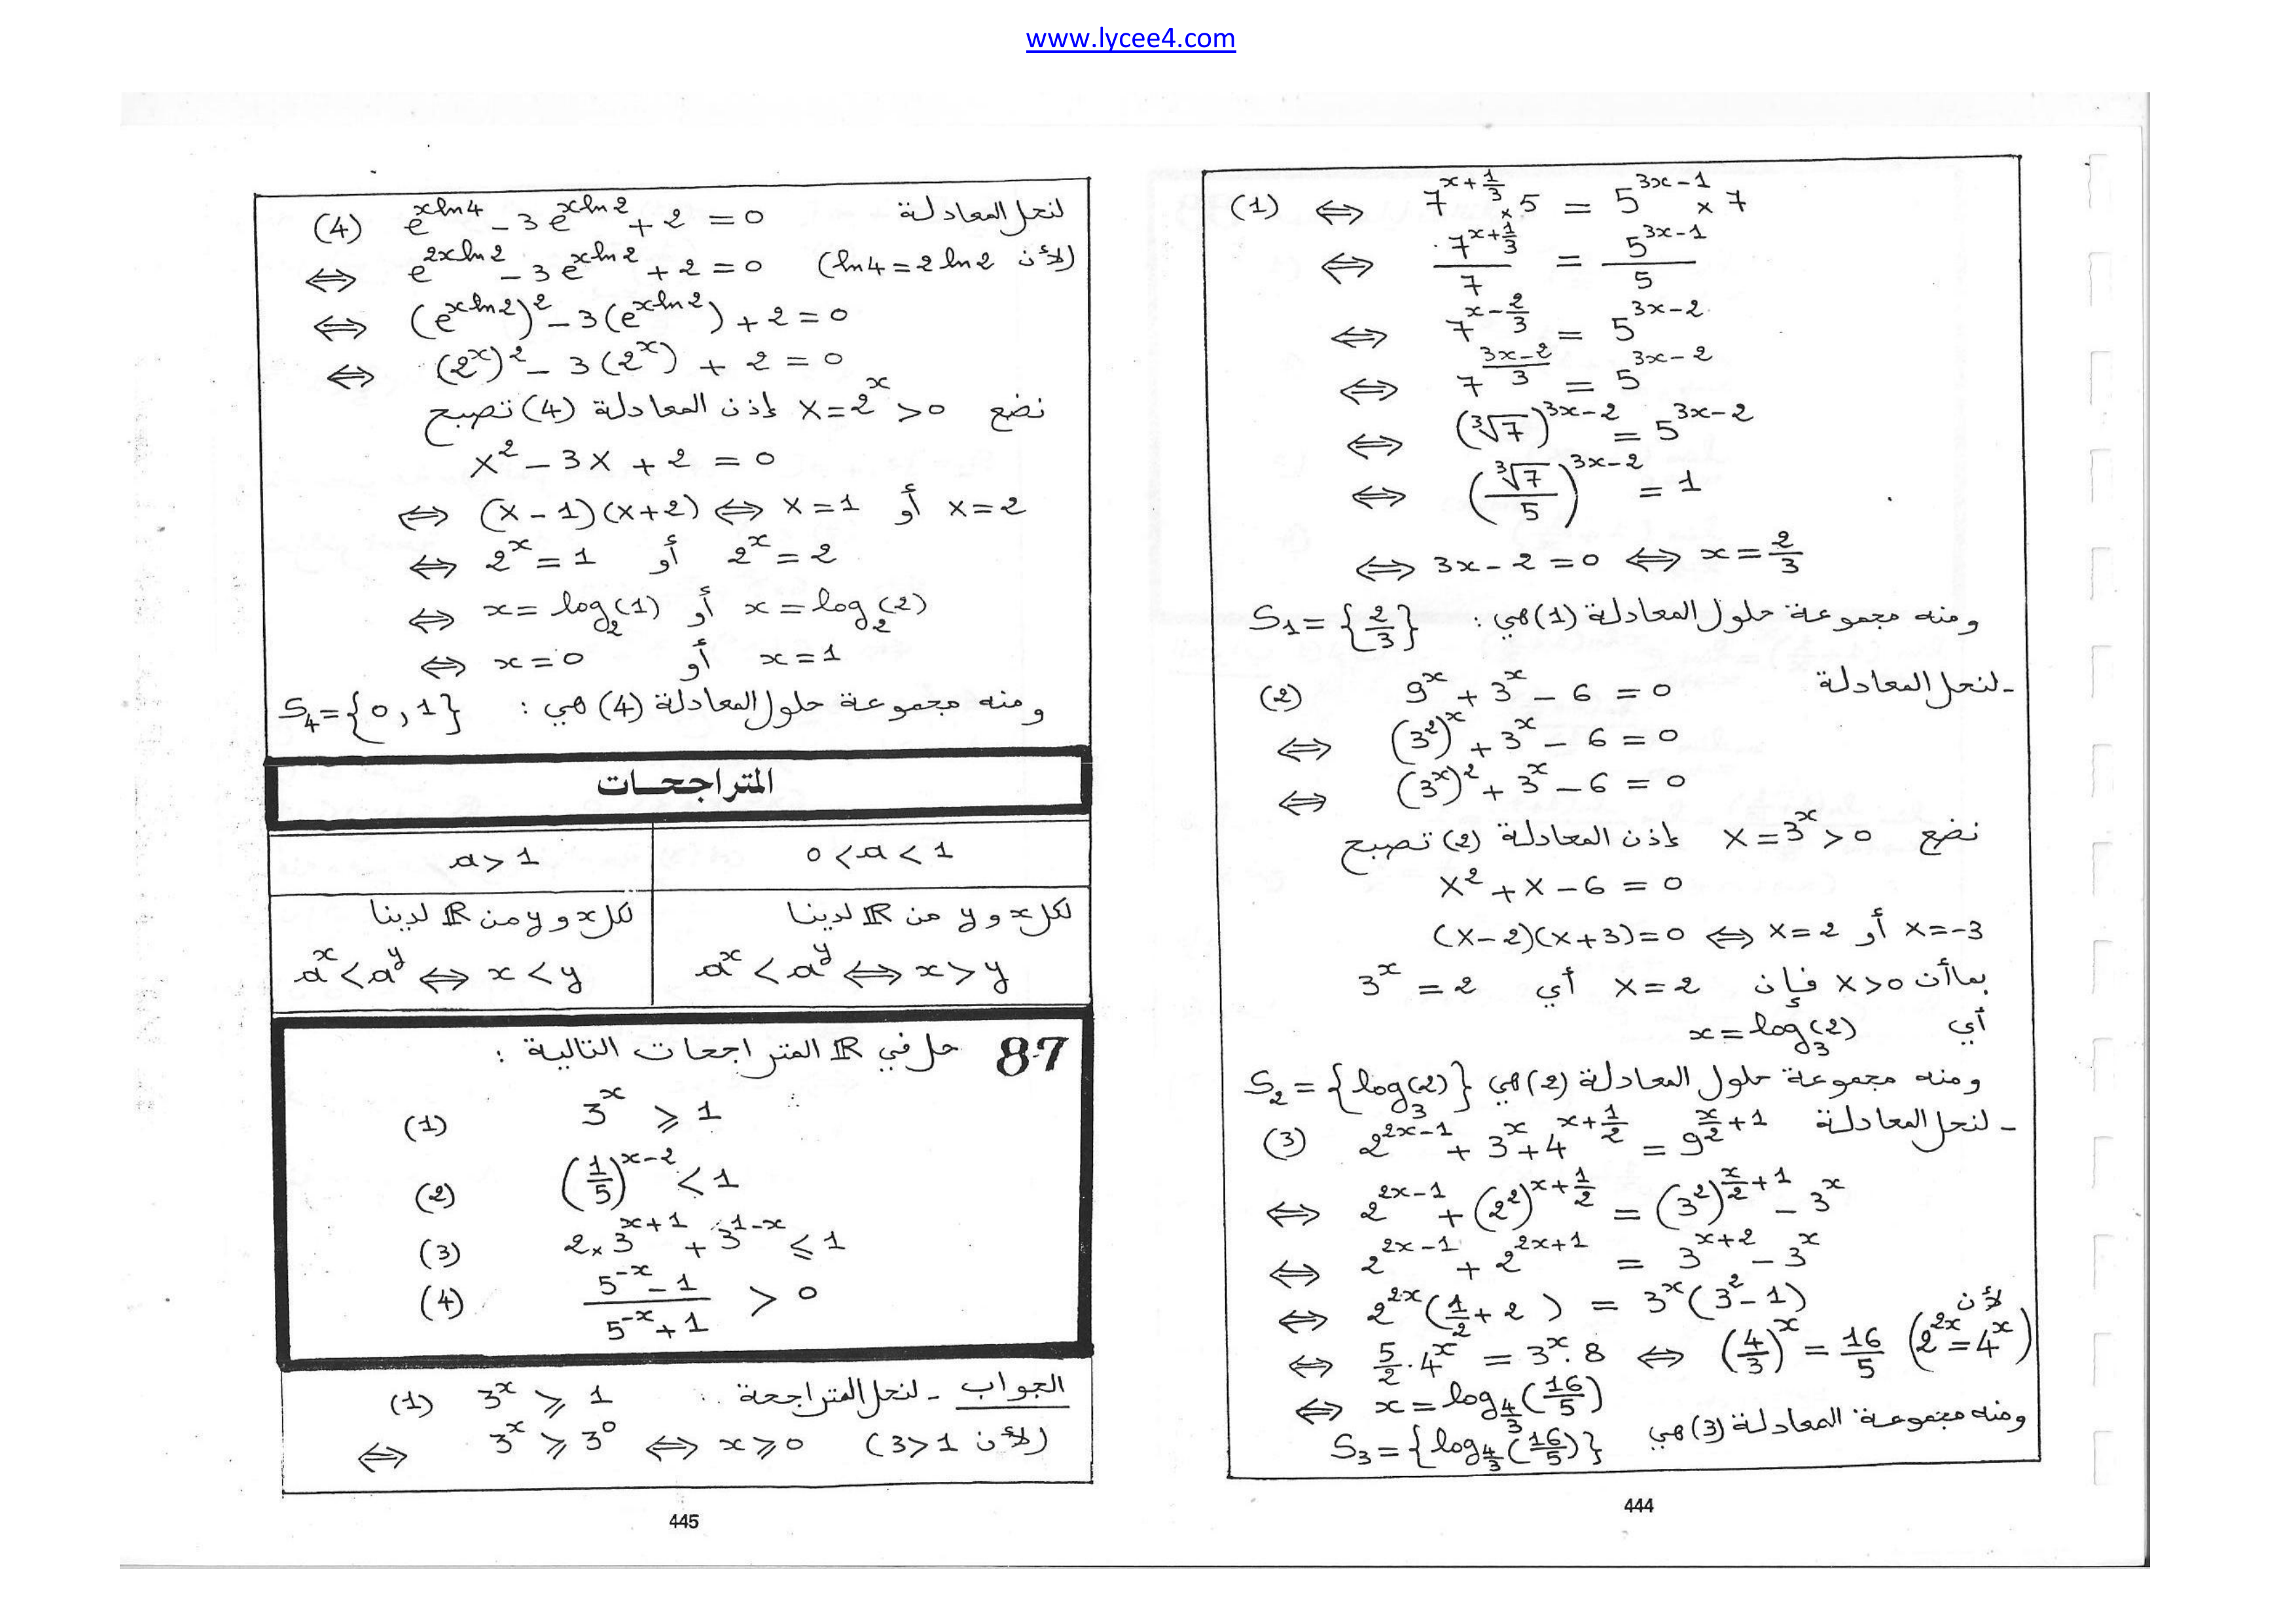 www.lycee4.com
(1) ⇔ 7^{x+1/3} × 5 = 5^{3x-1} × 7
⇔ 7^{x+1/3}/7 = 5^{3x-1}/5
⇔ 7^{x-2/3} = 5^{3x-2}
⇔ 7^{(3x-2)/3} = 5^{3x-2}
⇔ (∛7)^{3x-2} = 5^{3x-2}
⇔ (∛7/5)^{3x-2} = 1
⇔ 3x-2=0 ⇔ x=2/3
ومنه مجموعة حلول المعادلة (1) هي : S₁={2/3}
- لنحل المعادلة 9^x + 3^x - 6 = 0 (2)
⇔ (3²)^x + 3^x - 6 = 0
⇔ (3^x)² + 3^x - 6 = 0
نضع X=3^x>0 إذن المعادلة (2) تصبح
X² + X - 6 = 0
(X-2)(X+3)=0 ⇔ X=2 أو X=-3
بما أن X>0 فإن X=2 أي 3^x = 2
أي x=log₃(2)
ومنه مجموعة حلول المعادلة (2) هي S₂={log₃(2)}
- لنحل المعادلة 2^{2x-1} + 3^x + 4^{x+1/2} = 9^{x/2+1} (3)
⇔ 2^{2x-1} + (2²)^{x+1/2} = (3²)^{x/2+1} - 3^x
⇔ 2^{2x-1} + 2^{2x+1} = 3^{x+2} - 3^x
⇔ 2^{2x}(1/2+2) = 3^x(3²-1)
⇔ 5/2 · 4^x = 3^x · 8 ⇔ (4/3)^x = 16/5 (لأن 2^{2x}=4^x)
⇔ x = log_{4/3}(16/5)
ومنه مجموعة المعادلة (3) هي S₃={log_{4/3}(16/5)}
444
لنحل المعادلة e^{xln4} - 3e^{xln2} + 2 = 0 (4)
⇔ e^{2xln2} - 3e^{xln2} + 2 = 0 (لأن ln4=2ln2)
⇔ (e^{xln2})² - 3(e^{xln2}) + 2 = 0
⇔ (2^x)² - 3(2^x) + 2 = 0
نضع X=2^x>0 إذن المعادلة (4) تصبح
X² - 3X + 2 = 0
⇔ (X-1)(X+2) ⇔ X=1 أو X=2
⇔ 2^x=1 أو 2^x=2
⇔ x=log₂(1) أو x=log₂(2)
⇔ x=0 أو x=1
ومنه مجموعة حلول المعادلة (4) هي : S₄={0,1}
المتراجحات
0<a<1
a>1
لكل x و y من ℝ لدينا
a^x<a^y ⇔ x>y
لكل x و y من ℝ لدينا
a^x<a^y ⇔ x<y
87 حل في ℝ المتراجحات التالية :
(1) 3^x ⩾ 1
(2) (1/5)^{x-2} < 1
(3) 2×3^{x+1} + 3^{1-x} ⩽ 1
(4) (5^{-x}-1)/(5^{-x}+1) > 0
الجواب - لنحل المتراجحة 3^x ⩾ 1 (1)
⇔ 3^x ⩾ 3^0 ⇔ x⩾0 (لأن 3>1)
445